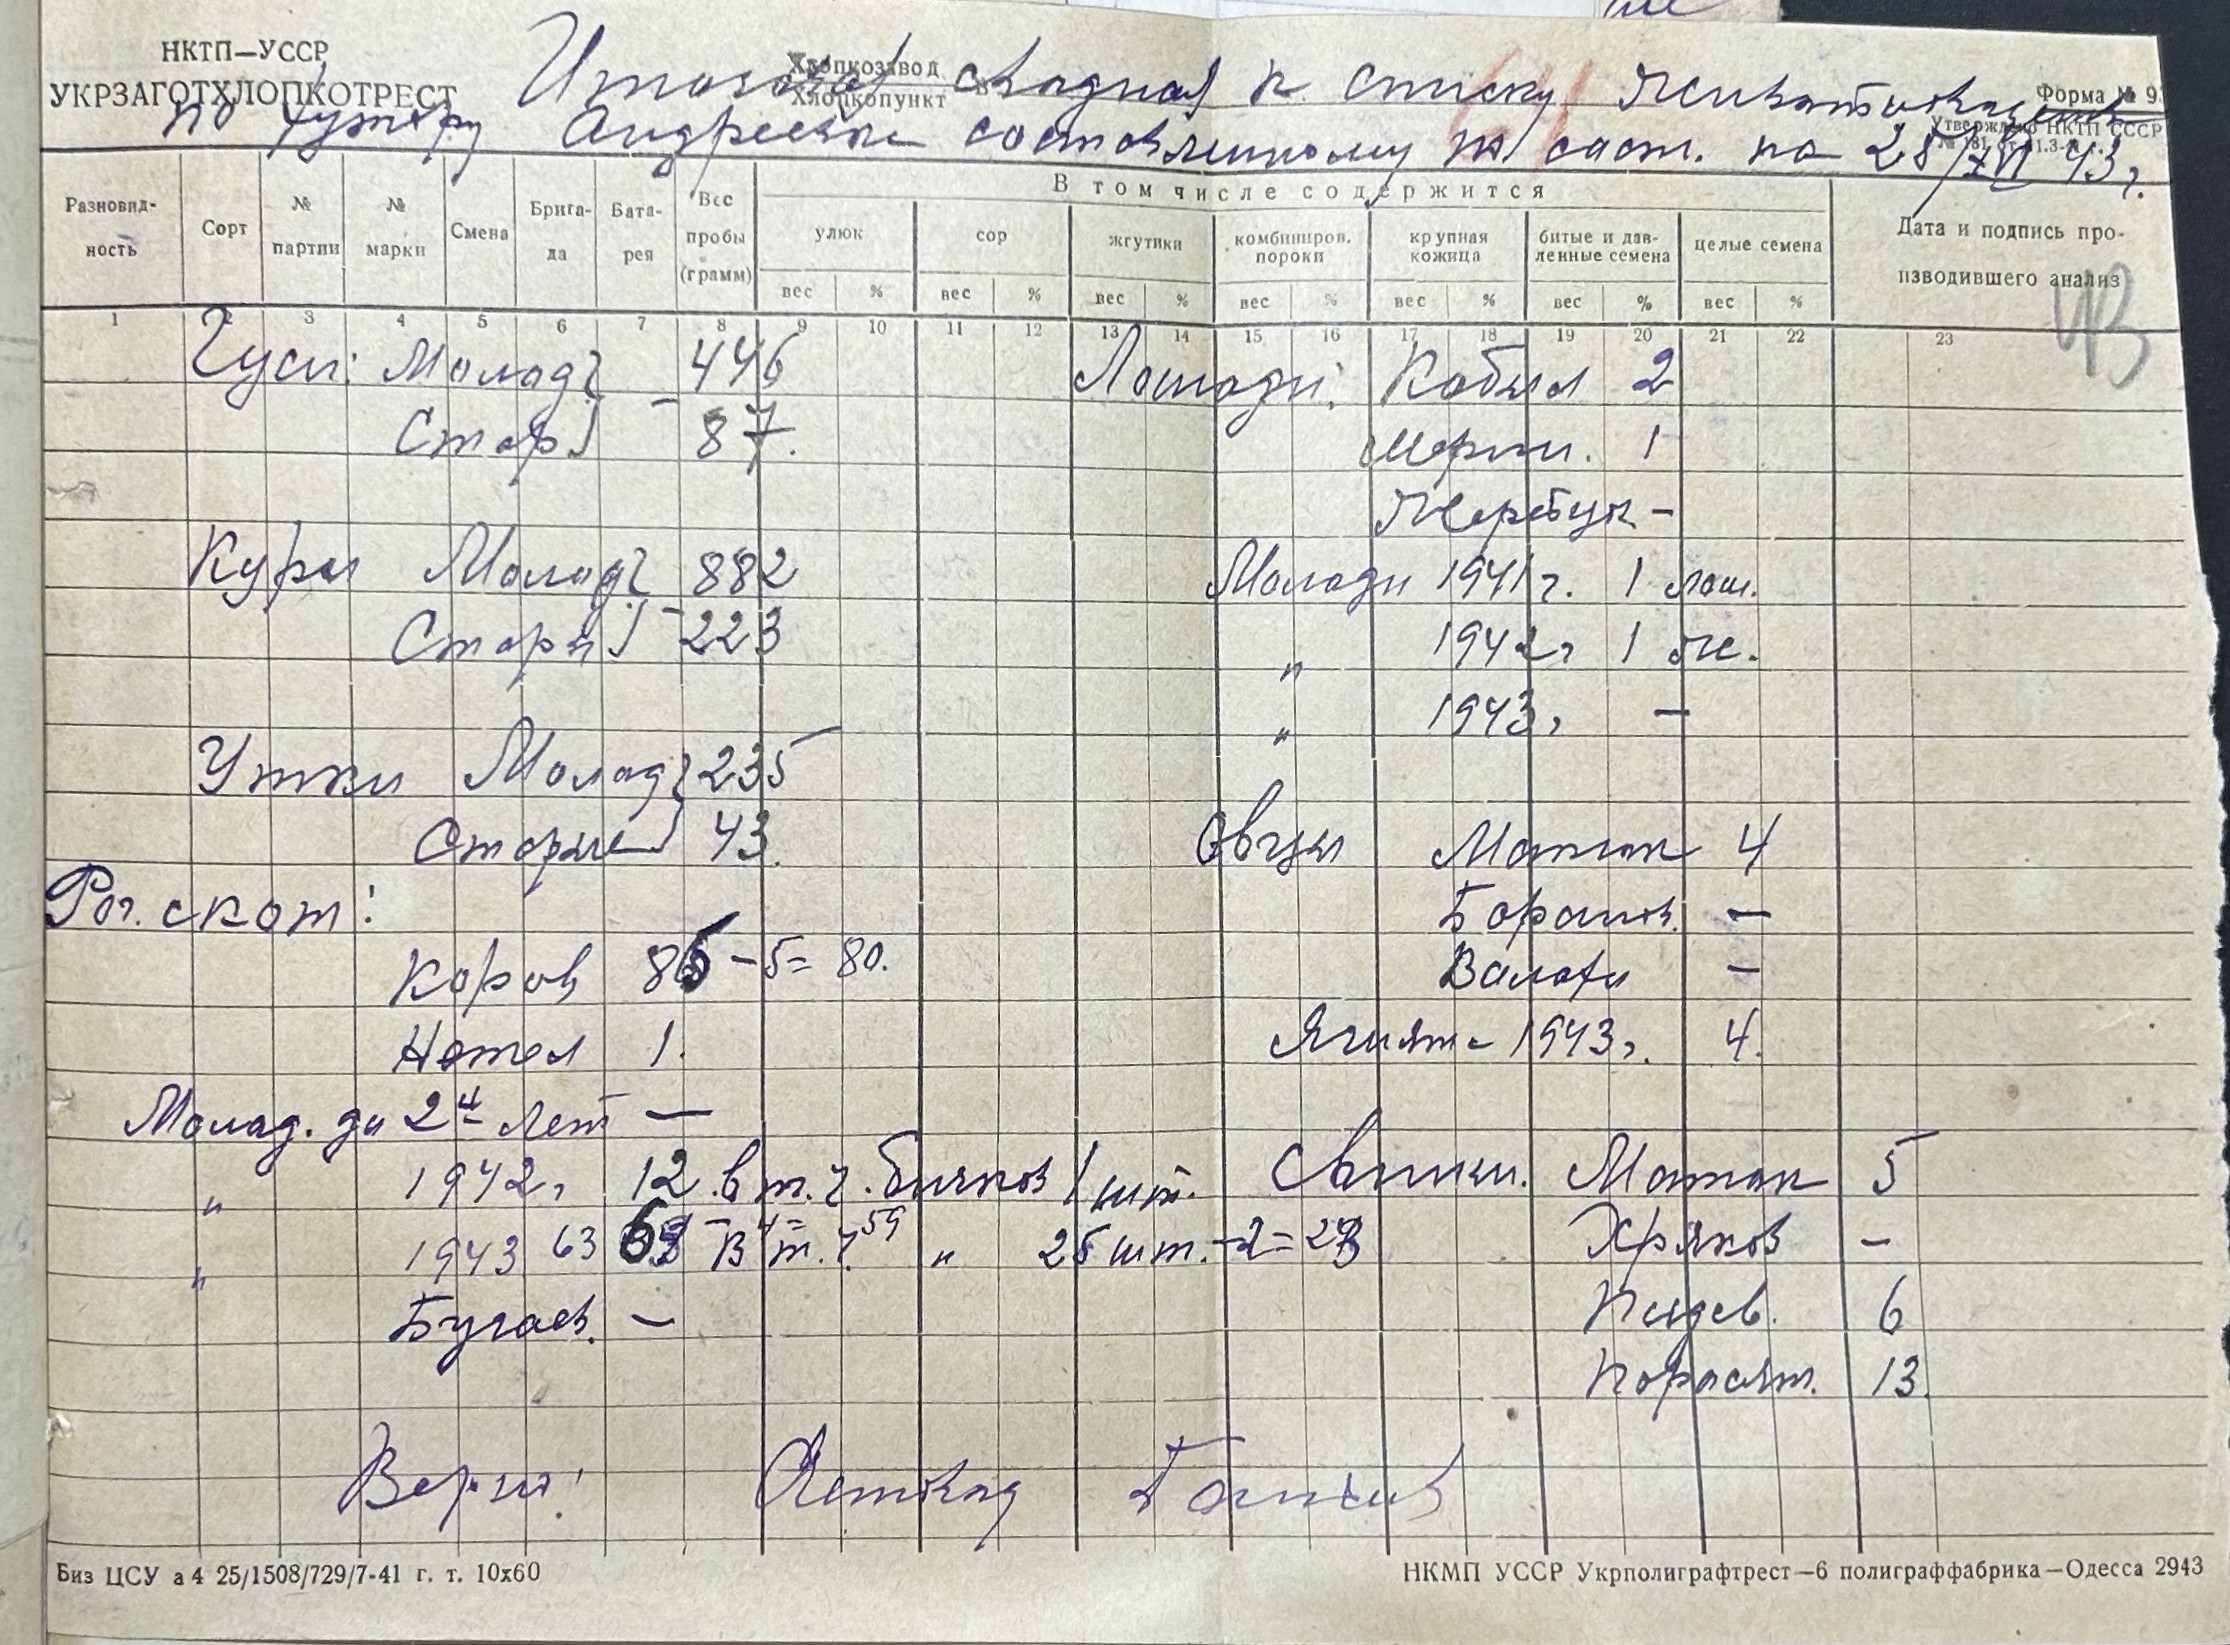 НКТП—УССР
УКРЗАГОТХЛОПКОТРЕСТ
Хлопкозавод
Хлопкопункт
Форма № 9
Утверждено НКТП СССР
Итоговая сводная к списку
по хутору Андреевка составленному по сост. на 28/XII 43 г.
Разновидность
Сорт
№ партии
№ марки
Смена
Бригада
Батарея
Вес пробы (грамм)
В том числе содержится
улюк
сор
жгутики
комбиниров. пороки
крупная кожица
битые и давленные семена
целые семена
Дата и подпись производившего анализ
вес % вес % вес % вес % вес % вес % вес %
1 2 3 4 5 6 7 8 9 10 11 12 13 14 15 16 17 18 19 20 21 22 23
Гуси: Молод 446
Стар 87.
Куры Молод 882
Стары 223
Утки Молод 235
Старые 43.
Рог. скот:
Коров 85 – 5 = 80.
Нетел 1.
Молод. до 2х лет —
" 1942 г 12 в т. ч. бычков 1 шт.
" 1943 63 63 – 4 = 59 в т. ч. " 25 шт. – 2 = 23
Бугаев. —
Лошади: Кобыл 2
Мерин. 1
Жеребцы —
Молоди 1941 г. 1 лош.
" 1942 г 1 же.
" 1943 г —
Овцы Маток 4
Боранов. —
Валахи —
Ягнят - 1943 г. 4.
Свиньи. Маток 5
Хряков —
Подсв. 6
Поросят. 13.
Верно:
Биз ЦСУ а4 25/1508/729/7-41 г. т. 10х60
НКМП УССР Укрполиграфтрест—6 полиграффабрика—Одесса 2943